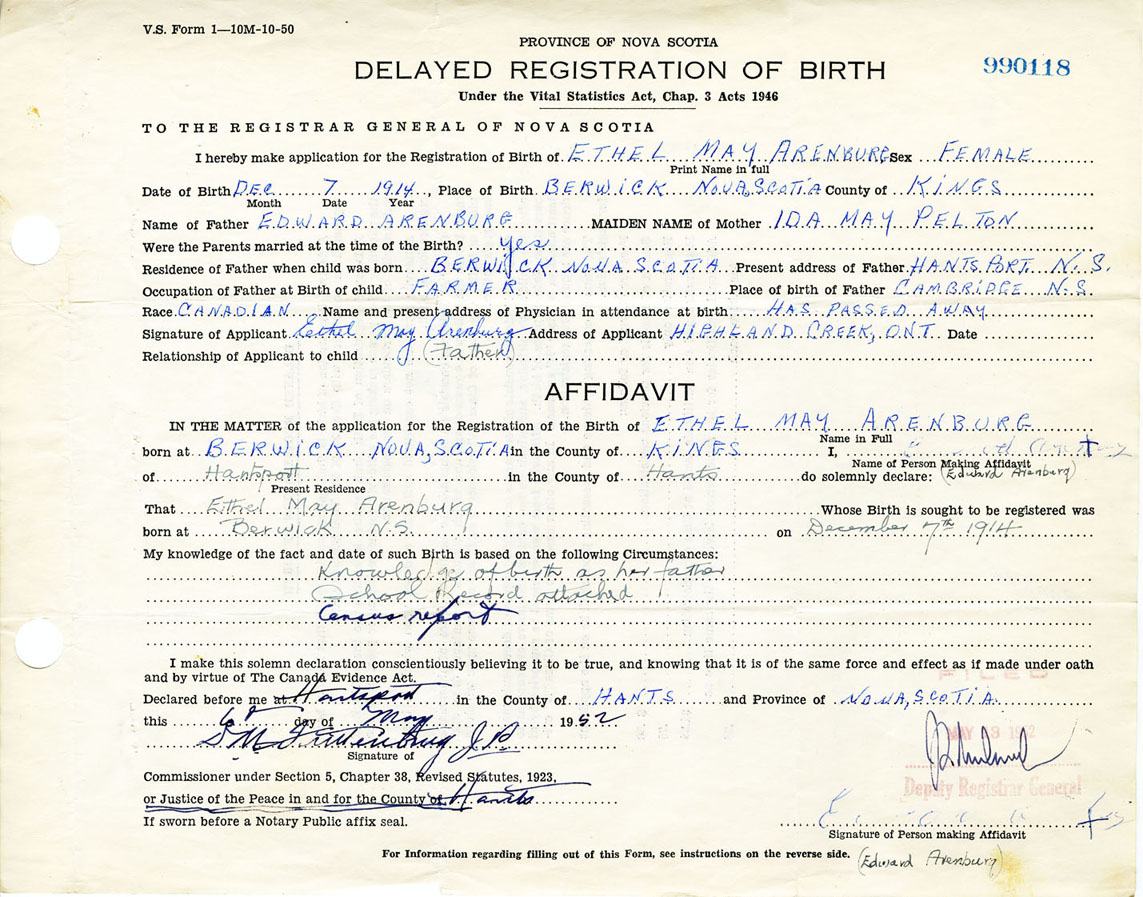 V.S. Form 1—10M-10-50
PROVINCE OF NOVA SCOTIA
DELAYED REGISTRATION OF BIRTH
990118
Under the Vital Statistics Act, Chap. 3 Acts 1946
TO THE REGISTRAR GENERAL OF NOVA SCOTIA
I hereby make application for the Registration of Birth of ETHEL MAY ARENBURG Sex FEMALE
Print Name in full
Date of Birth DEC 7 1914, Place of Birth BERWICK NOVA, SCOTIA County of KINGS
Month Date Year
Name of Father EDWARD ARENBURG MAIDEN NAME of Mother IDA MAY PELTON
Were the Parents married at the time of the Birth? yes
Residence of Father when child was born BERWICK NOVA SCOTIA Present address of Father HANTSPORT N.S.
Occupation of Father at Birth of child FARMER Place of birth of Father CAMBRIDGE N.S.
Race CANADIAN Name and present address of Physician in attendance at birth HAS PASSED AWAY
Signature of Applicant Ethel May Arenburg Address of Applicant HIGHLAND CREEK, ONT. Date
Relationship of Applicant to child (Father)
AFFIDAVIT
IN THE MATTER of the application for the Registration of the Birth of ETHEL MAY ARENBURG
Name in Full
born at BERWICK NOVA, SCOTIA in the County of KINGS I,
Name of Person Making Affidavit
of Hantsport in the County of Hants do solemnly declare: (Edward Arenburg)
Present Residence
That Ethel May Arenburg Whose Birth is sought to be registered was
born at Berwick N.S. on December 7th 1914
My knowledge of the fact and date of such Birth is based on the following Circumstances:
Knowledge of birth as her father
School Record attached
Census report
I make this solemn declaration conscientiously believing it to be true, and knowing that it is of the same force and effect as if made under oath
and by virtue of The Canada Evidence Act.
FILED
Declared before me at Hantsport in the County of HANTS and Province of NOVA, SCOTIA.
this day of May 1952
Signature of
Commissioner under Section 5, Chapter 38, Revised Statutes, 1923,
Deputy Registrar General
or Justice of the Peace in and for the County of Hants
If sworn before a Notary Public affix seal.
Signature of Person making Affidavit
For Information regarding filling out of this Form, see instructions on the reverse side.
(Edward Arenburg)